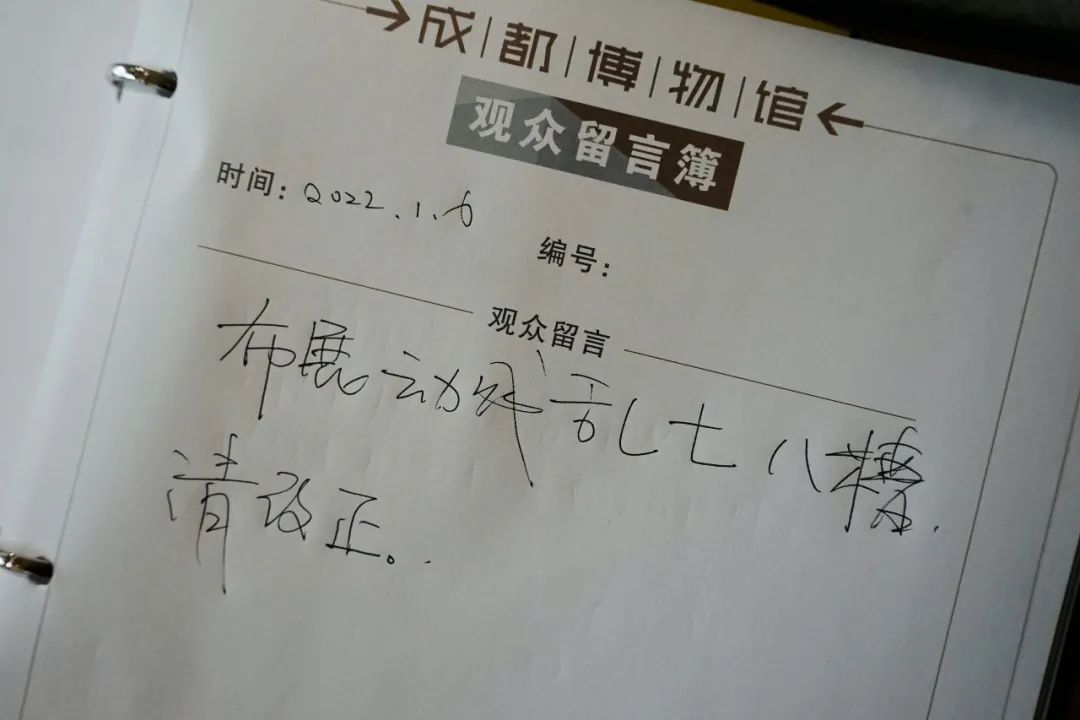 成都博物馆
观众留言簿
时间：2022.1.6
编号：
观众留言
布展动线乱七八糟.
请改正。